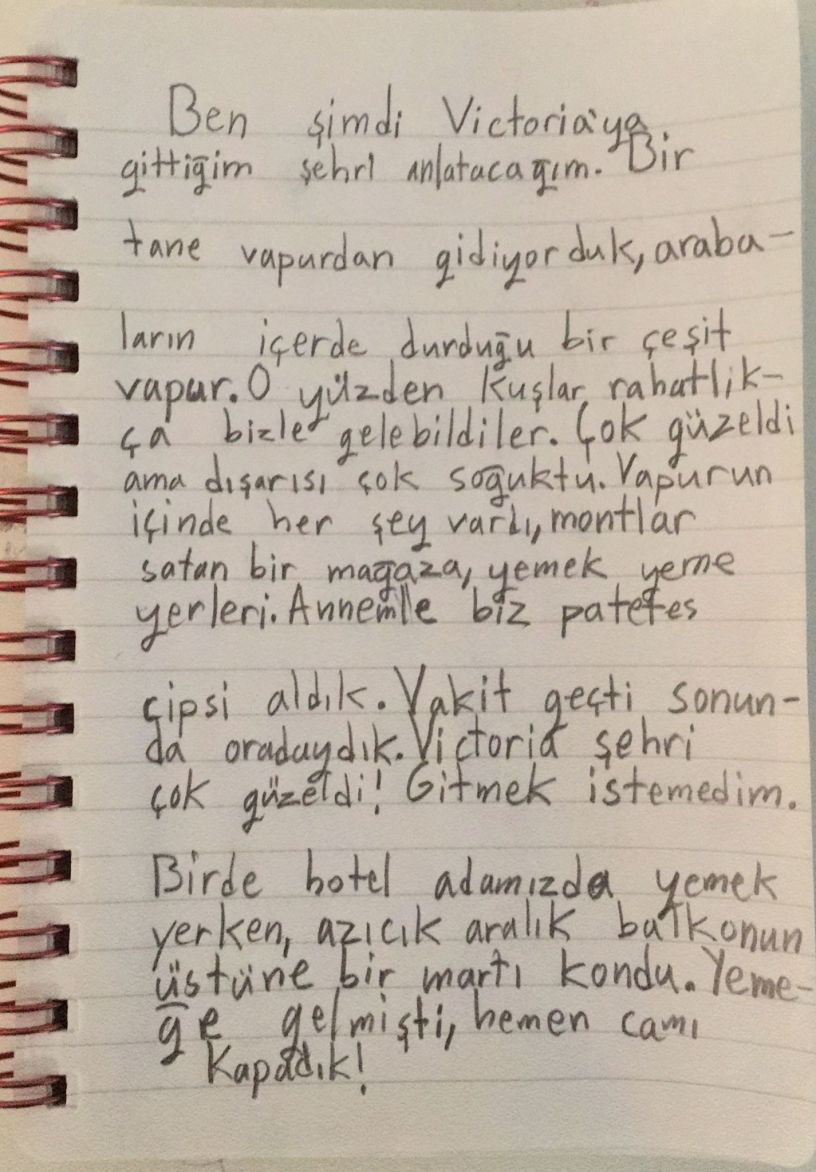 Ben şimdi Victoria'ya
gittiğim şehri anlatacağım. Bir
tane vapurdan gidiyorduk, araba-
ların içerde durduğu bir çeşit
vapur. O yüzden kuşlar rahatlık-
ça bizle gelebildiler. Çok güzeldi
ama dışarısı çok soğuktu. Vapurun
içinde her şey vardı, montlar
satan bir mağaza, yemek yeme
yerleri. Annemle biz patetes
çipsi aldık. Vakit geçti sonun-
da oradaydık. Victoria şehri
çok güzeldi! Gitmek istemedim.
Birde hotel adamızda yemek
yerken, azıcık aralık balkonun
üstüne bir martı kondu. Yeme-
ğe gelmişti, hemen camı
kapadık!